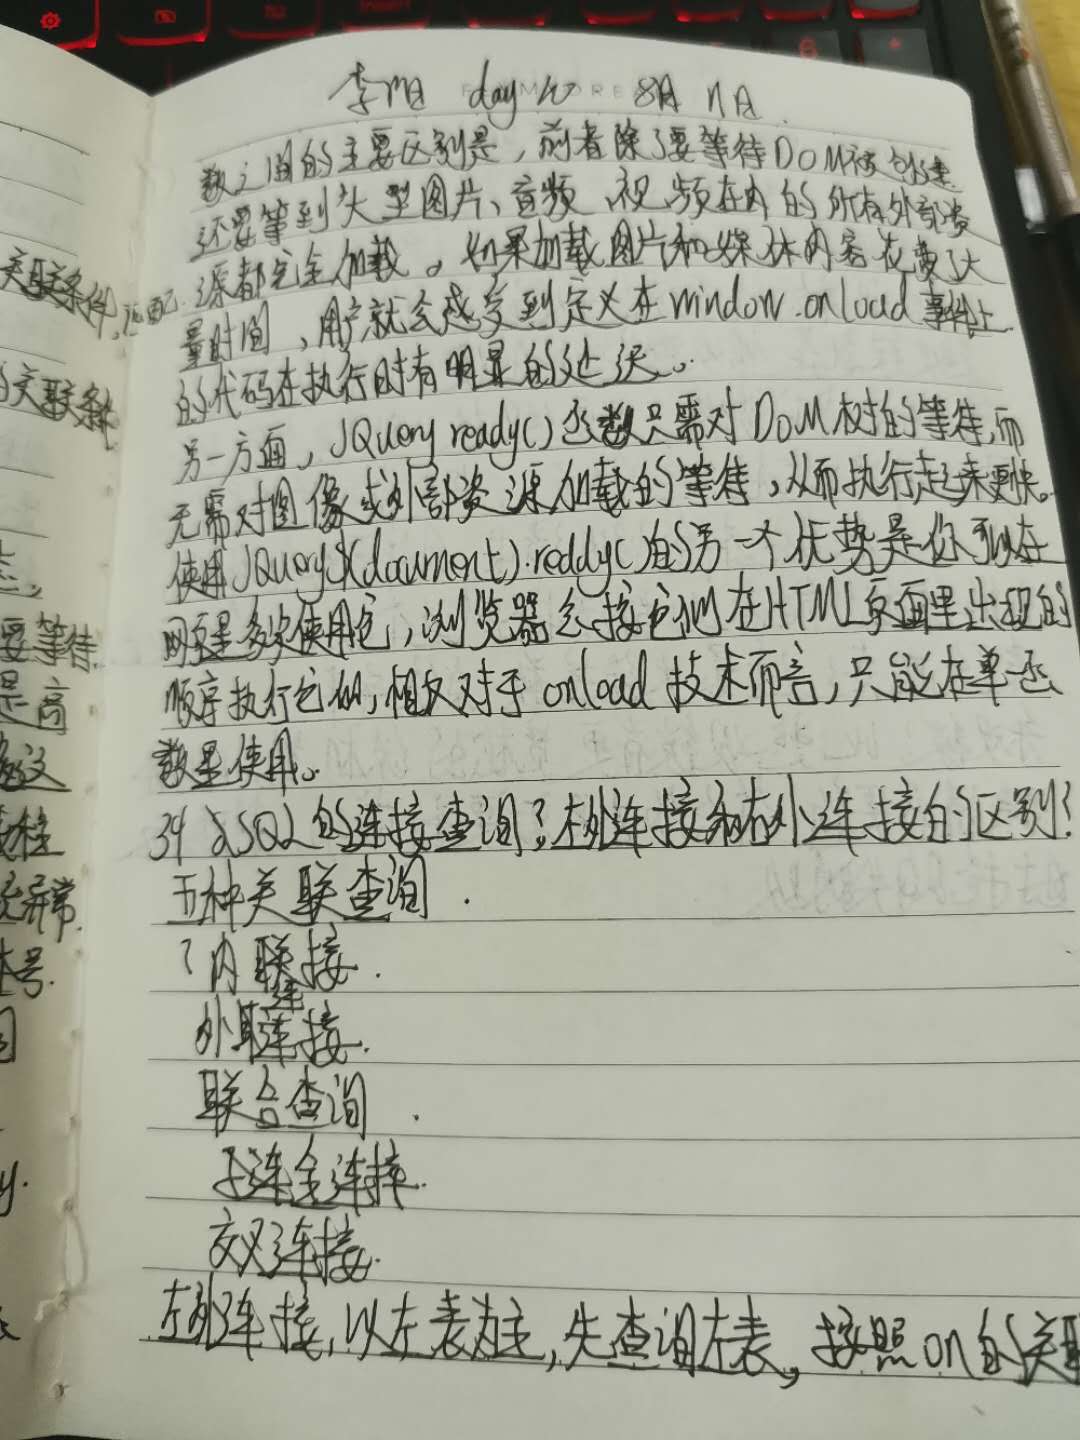 day 10 8月11日
数之间的主要区别是，前者除了要等待DOM被创建
还要等到大型图片、音频、视频在内的所有外部资
源都完全加载。如果加载图片和媒体内容花费了大
量时间，用户就会感受到定义在window.onload事件上
的代码在执行时有明显的延迟。
另一方面，JQuery ready()函数只需对DOM树的等待,而
无需对图像或外部资源加载的等待，从而执行起来更快。
使用JQuery$(document).reddy()的另一个优势是你可以在
网页里多次使用它，浏览器会按它们在HTML页面里出现的
顺序执行它们,相反对于onload技术而言，只能在单一函
数里使用。
34 SQL的连接查询？左外连接和右外连接的区别？
五种关联查询.
内联接.
外联连接.
联合查询.
全连接.
交叉连接.
左外连接,以左表为主,先查询左表,按照on的关联
关联条件,匹配
的关联条件
要等待
是高
异常.
本号.